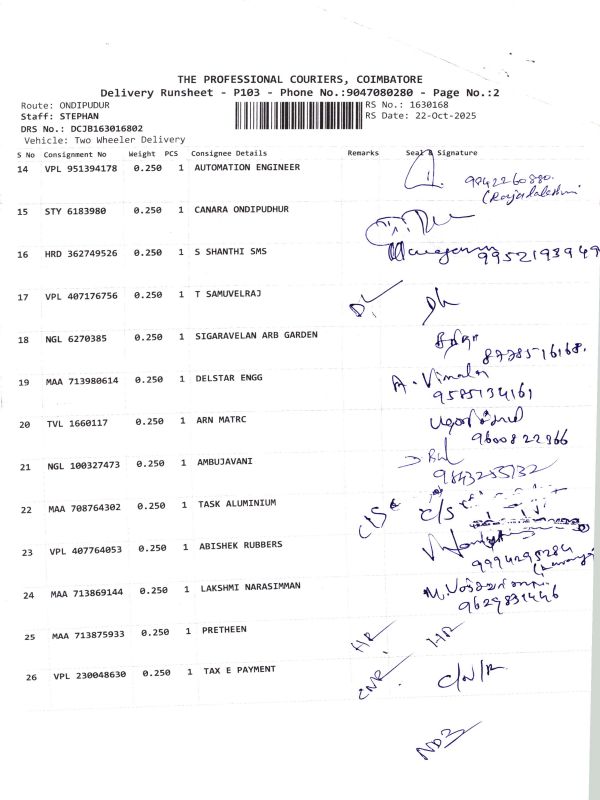 THE PROFESSIONAL COURIERS, COIMBATORE
Delivery Runsheet - P103 - Phone No.:9047080280 - Page No.:2
Route: ONDIPUDUR RS No.: 1630168
Staff: STEPHAN RS Date: 22-Oct-2025
DRS No.: DCJB163016802
Vehicle: Two Wheeler Delivery
S No Consignment No Weight PCS Consignee Details Remarks Seal & Signature
14 VPL 951394178 0.250 1 AUTOMATION ENGINEER
9842260880.
(Rajalakshmi
15 STY 6183980 0.250 1 CANARA ONDIPUDHUR
16 HRD 362749526 0.250 1 S SHANTHI SMS 9952193949
17 VPL 407176756 0.250 1 T SAMUVELRAJ DL DL
18 NGL 6270385 0.250 1 SIGARAVELAN ARB GARDEN
8778516168.
19 MAA 713980614 0.250 1 DELSTAR ENGG A. Vimala
9585134161
20 TVL 1660117 0.250 1 ARN MATRC
9600822866
21 NGL 100327473 0.250 1 AMBUJAVANI
9843255732
22 MAA 708764302 0.250 1 TASK ALUMINIUM C/S C/S
23 VPL 407764053 0.250 1 ABISHEK RUBBERS
9994295284
24 MAA 713869144 0.250 1 LAKSHMI NARASIMMAN
9629831446
25 MAA 713875933 0.250 1 PRETHEEN HR HR
26 VPL 230048630 0.250 1 TAX E PAYMENT CNR C/N/R